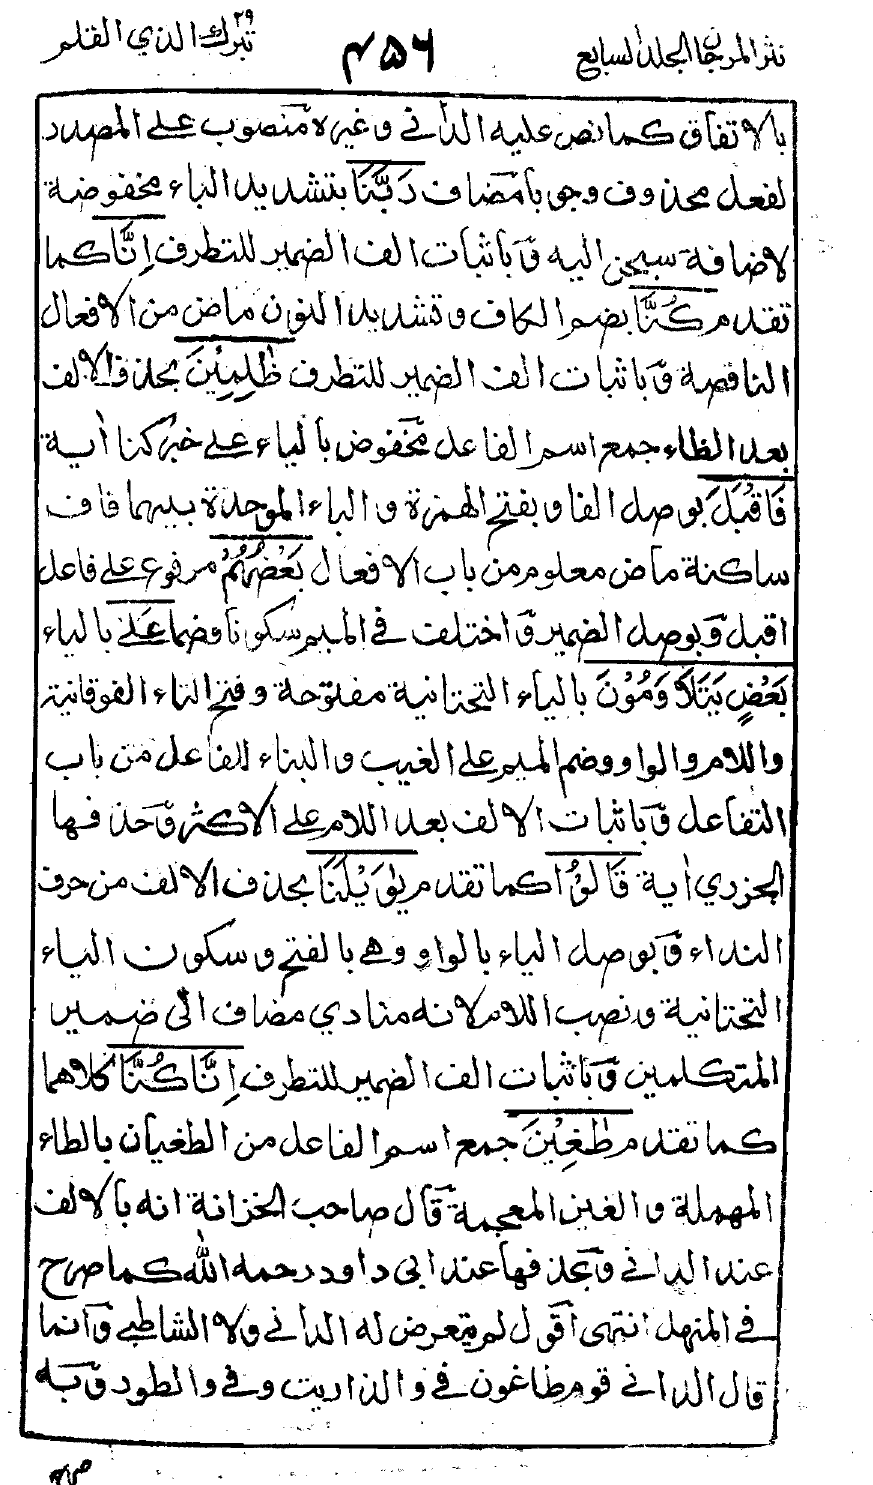 نثر المرجان الجلد السابع
٤٥٦
تبرك الذي ٢٩ القلم
بالاتفاق كما نص عليه الداني وغيره منصوب على المصدر
لفعل محذوف وجوبا مضاف رَبِّنَا بتشديد الباء مخفوضة
لاضافة سبحن اليه وباثبات الف الضمير للتطرف اِنَّا كما
تقدم كُنَّا بضم الكاف وتشديد النون ماض من الافعال
الناقصة وباثبات الف الضمير للتطرف ظٰلِمِيْنَ بحذف الالف
بعد الظاء جمع اسم الفاعل مخفوض بالياء على خبر كنا اٰية
فَاَقْبَلَ بوصل الفا وبفتح الهمزة والباء الموحدة بينهما قاف
ساكنة ماض معلوم من باب الافعال بَعْضُهُمْ مرفوع على فاعل
اقبل وبوصل الضمير واختلف في الميم سكونا وضما عَلٰى بالياء
بَعْضٍ يَتَلَاوَمُوْنَ بالياء التحتانية مفتوحة وفتح التاء الفوقانية
واللام والواو وضم الميم على الغيب والبناء للفاعل من باب
التفاعل وباثبات الالف بعد اللام على الاكثر وحذفها
الجزري اٰية قَالُوْا كما تقدم يٰوَيْلَنَا بحذف الالف من حرف
النداء وبوصل الياء بالواو وهي بالفتح وسكون الياء
التحتانية ونصب اللام لانه منادي مضاف الى ضمير
المتكلمين وباثبات الف الضمير للتطرف اِنَّا كُنَّا كلاهما
كما تقدم طٰغِيْنَ جمع اسم الفاعل من الطغيان بالطاء
المهملة والغين المعجمة قال صاحب الخزانة انه بالالف
عند الداني وبحذفها عند ابى داود رحمه الله كما صرح
في المنهل انتهى اقول لم يتعرض له الداني ولا الشاطبي وانما
قال الداني قوم طاغون في والذاريت وفي والطور وبه